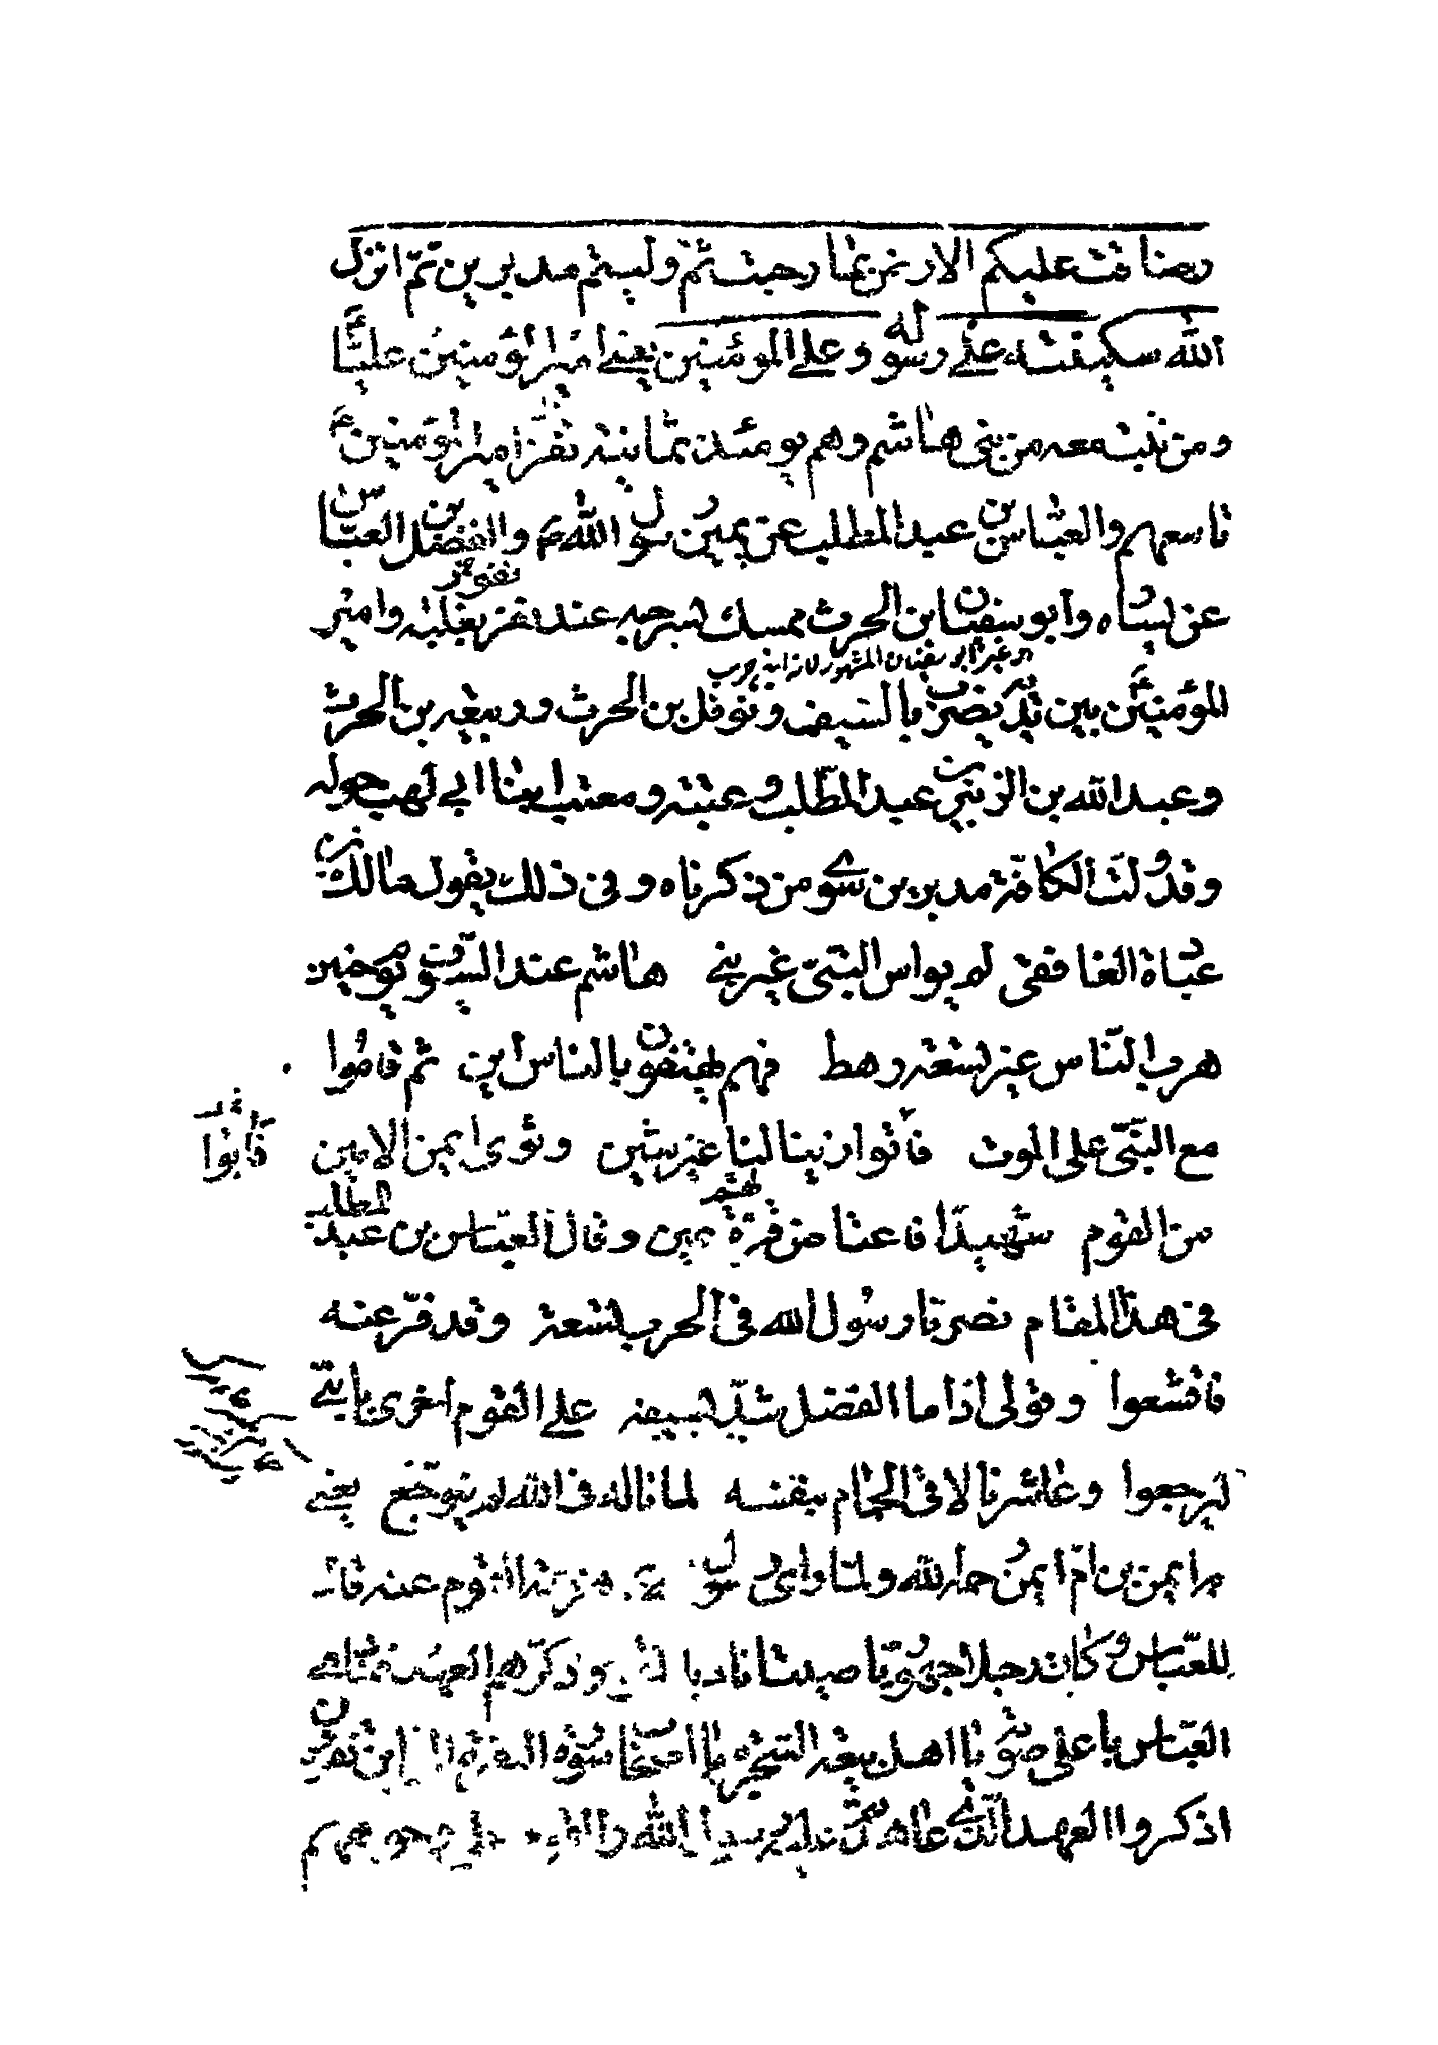 وضاقت عليكم الارض بما رحبت ثم وليتم مدبرين ثم انزل
الله سكينته على رسوله وعلى المؤمنين يعني امير المؤمنين عليّا
ومن ثبت معه من بني هاشم وهم يومئذ ثمانية نفر امير المؤمنين
تاسعهم والعباس بن عبد المطلب عن يمين رسول الله والفضل بن العباس
عن يساره وابو سفيان بن الحرث ممسك بسرجه عند نفر بغلته وامير
غير ابو سفيان المشهور لانه ابن حرب
المؤمنين بين يديه يضرب بالسيف ونوفل بن الحرث وربيعه بن الحرث
وعبد الله بن الزبير بن عبد المطلب وعتبة ومعتب ابنا ابي لهب حوله
وقد ولت الكافة مدبرين سوى من ذكرناه وفي ذلك يقول مالك بن
عبادة الغافقى لم يواس النبي غير بني هاشم عند السيوف يوم حنين
هرب الناس غير تسعة رهط فهم يهتفون بالناس اين ثم قاموا
مع النبي على الموت فأتوا زينا لنا غير شين وثوى ايمن الامين
فأبوا
من القوم شهيدا فاعتاض قرة عين وقال العباس بن عبد المطلب
في هذا المقام نصرنا رسول الله في الحرب تسعة وقد فر من قد فر عنه
فاقشعوا وقولى اذا ما الفضل شد بسيفه على القوم اخرى يا بني
ليرجعوا وعاشرنا لاقى الحمام بنفسه لما ناله في الله لم يتوجع يعني
به ايمن بن ام ايمن رحمه الله ولما راى رسول الله هزيمة القوم عنه قال
للعباس وكان رجلا جهوريا صيتا ناد بالقوم وذكرهم العهد فنادى
العباس باعلى صوته يا اهل بيعة الشجرة يا اصحاب سورة البقرة الى اين تفرون
اذكروا العهد الذي عاهدتم عليه رسول الله والقوم على وجوههم